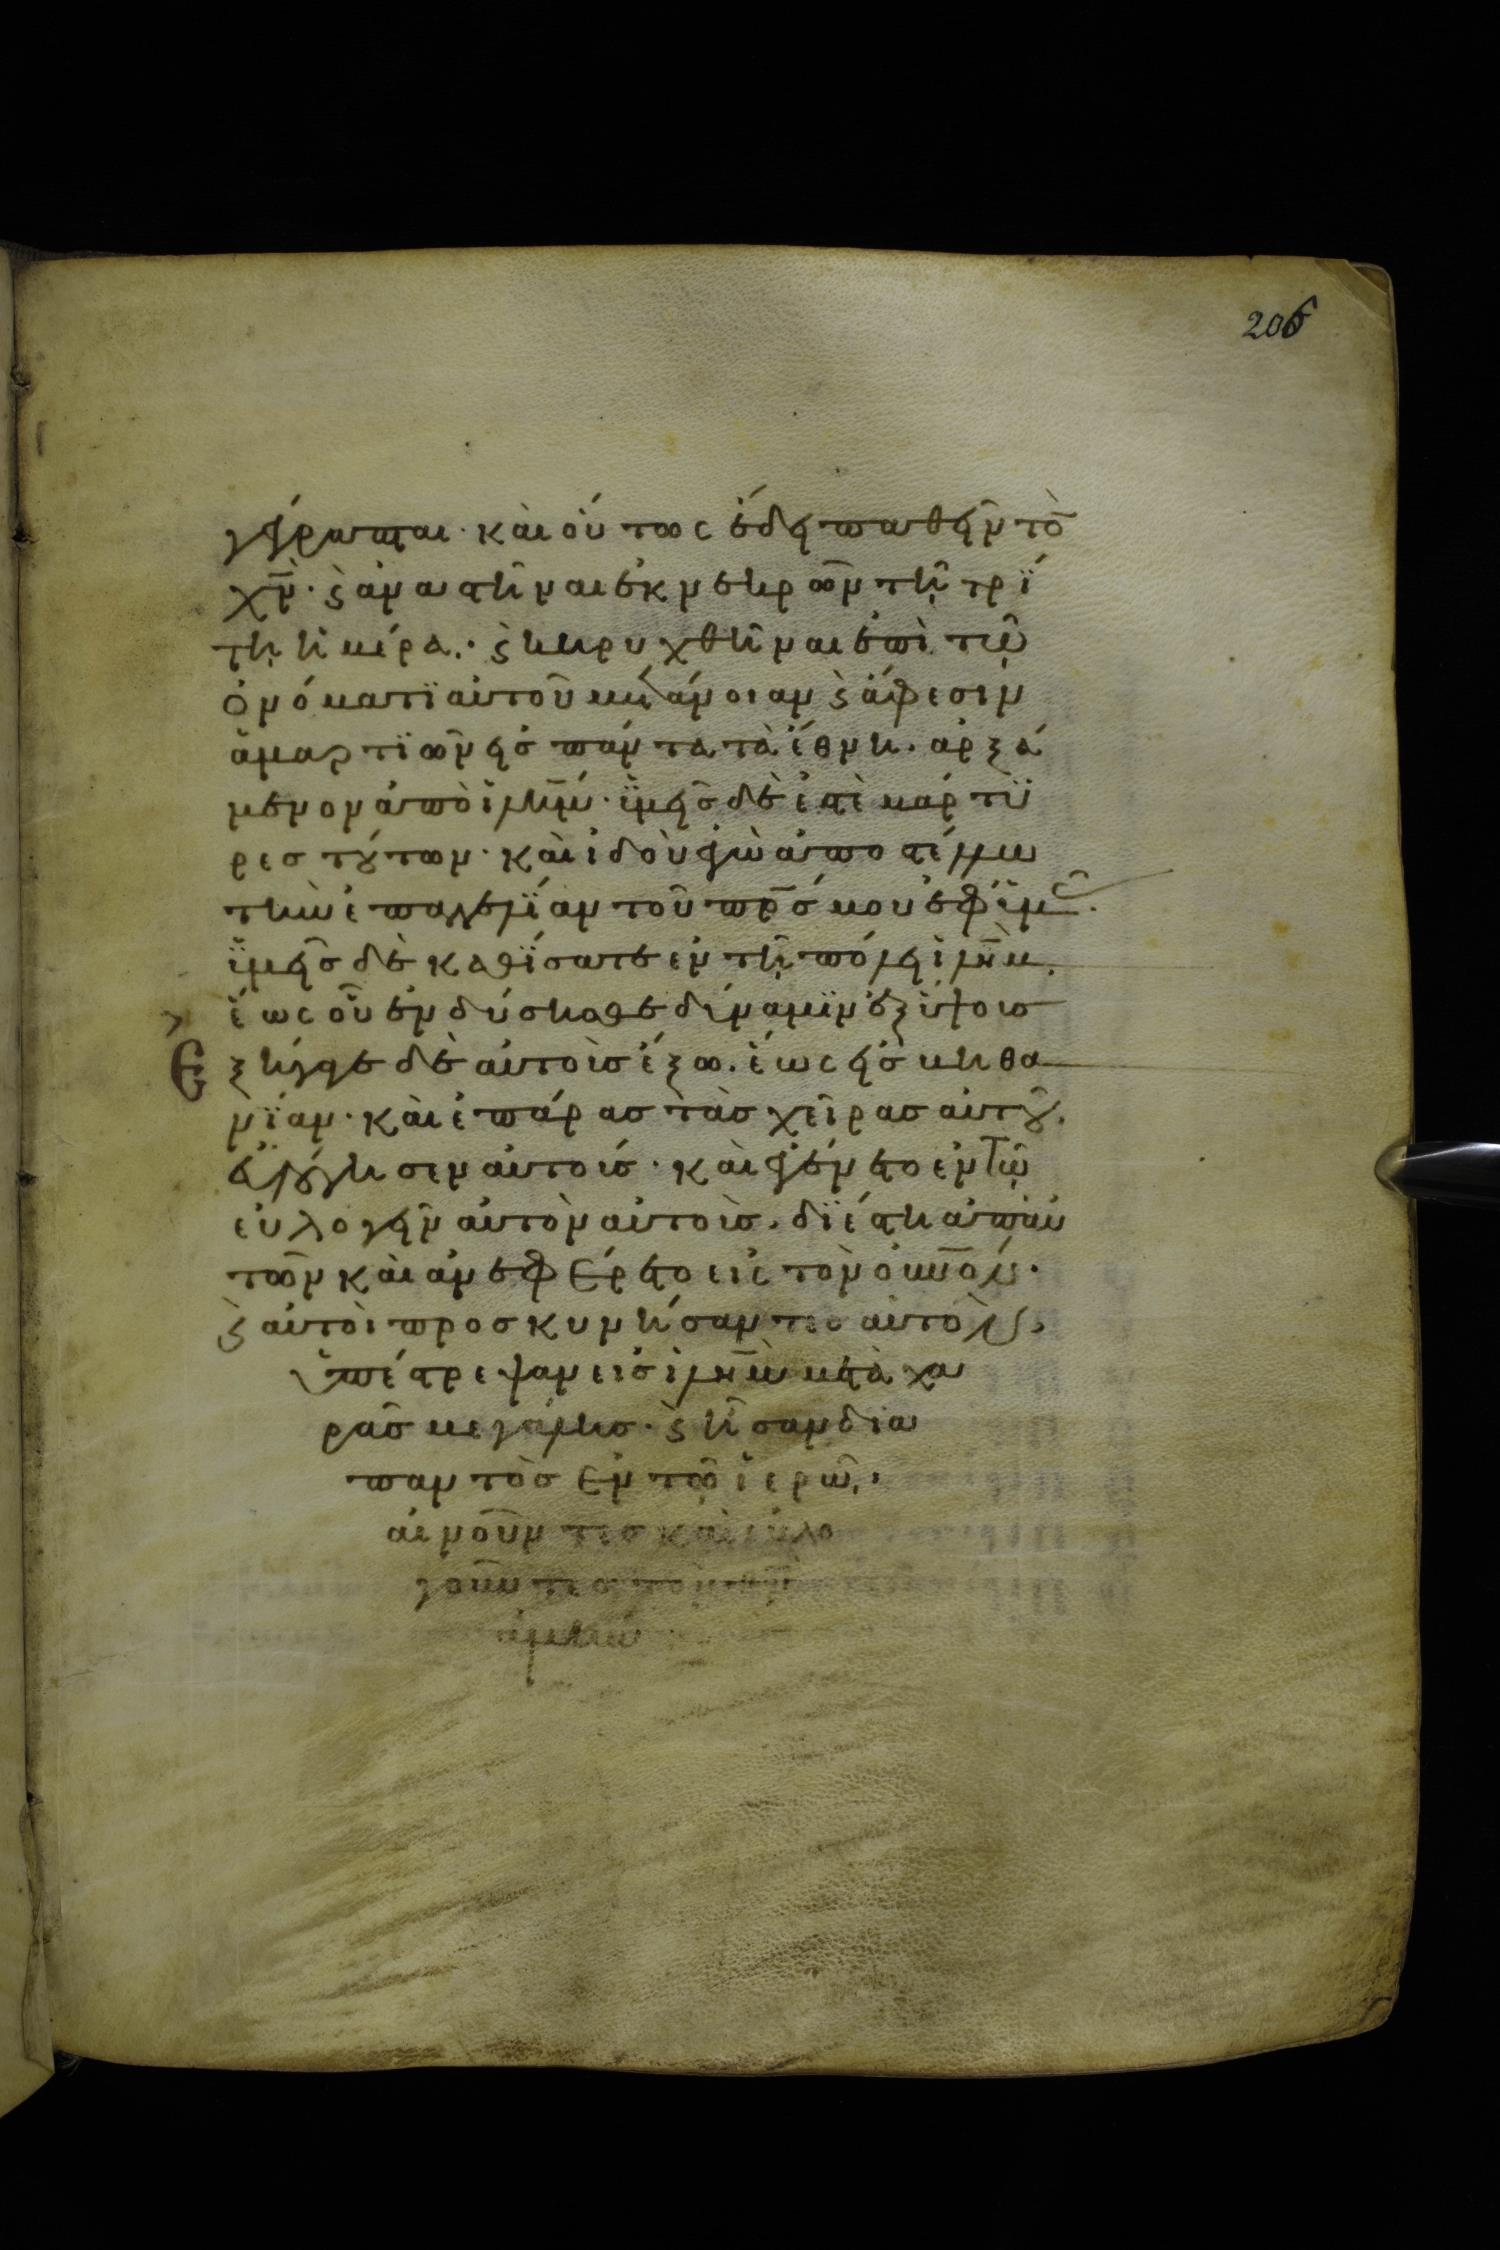 206
γέγραπται· καὶ οὕτως ἔδει παθεῖν τὸ
χν̅· ϗ ἀναστῆναι ἐκ νεκρῶν τῆ τρί
τη ἡμέρα· ϗ κηρυχθῆναι ἐπὶ τῶ
ὀνόματι αὐτοῦ μετάνοιαν ϗ ἄφεσιν
ἁμαρτιῶν εἰσ πάντα τὰ ἔθνη. ἀρξά
μενον ἀπὸ ἱλη̅μ· ὑμεῖσ δέ ἐστὲ μάρτυ
ρεσ τούτων· καὶ ἰδοὺ ἐγὼ ἀποστέλλω
τὴν ἐπαγγελίαν τοῦ πρ̅σ μου ἐφ ὑμᾶς.
ὑμεῖσ δὲ καθίσατε ἐν τῆ πόλει ἱλη̅μ.
ἕως οὗ ἐνδύσησθε δύναμιν ἐξ ὕψουσ
Ε ξήγαγε δὲ αὐτοὺσ ἔξω. ἕως εἰσ βηθα
νίαν· καὶ ἐπάρασ τὰσ χεῖρασ αὐτοῦ.
εὐλόγησεν αὐτούσ· καὶ ἐγένετο ἐν τῶ
εὐλογεῖν αὐτὸν αὐτοὺσ. διέστη ἀπ αὐ
τῶν καὶ ἀνεφέρετο εἰς τὸν οὐν̅ον·
ϗ αὐτοὶ προσκυνήσαντεσ αὐτὸν,
ὑπέστρεψαν εἰσ ἱλη̅μ μετὰ χα
ρᾶσ μεγάλησ· ϗ ἦσαν δια
παντὸσ ἐν τῶ ἱερῶ,
αἰνοῦντεσ καὶ εὐλο
γοῦντεσ τὸν θν̅
ἀμήν